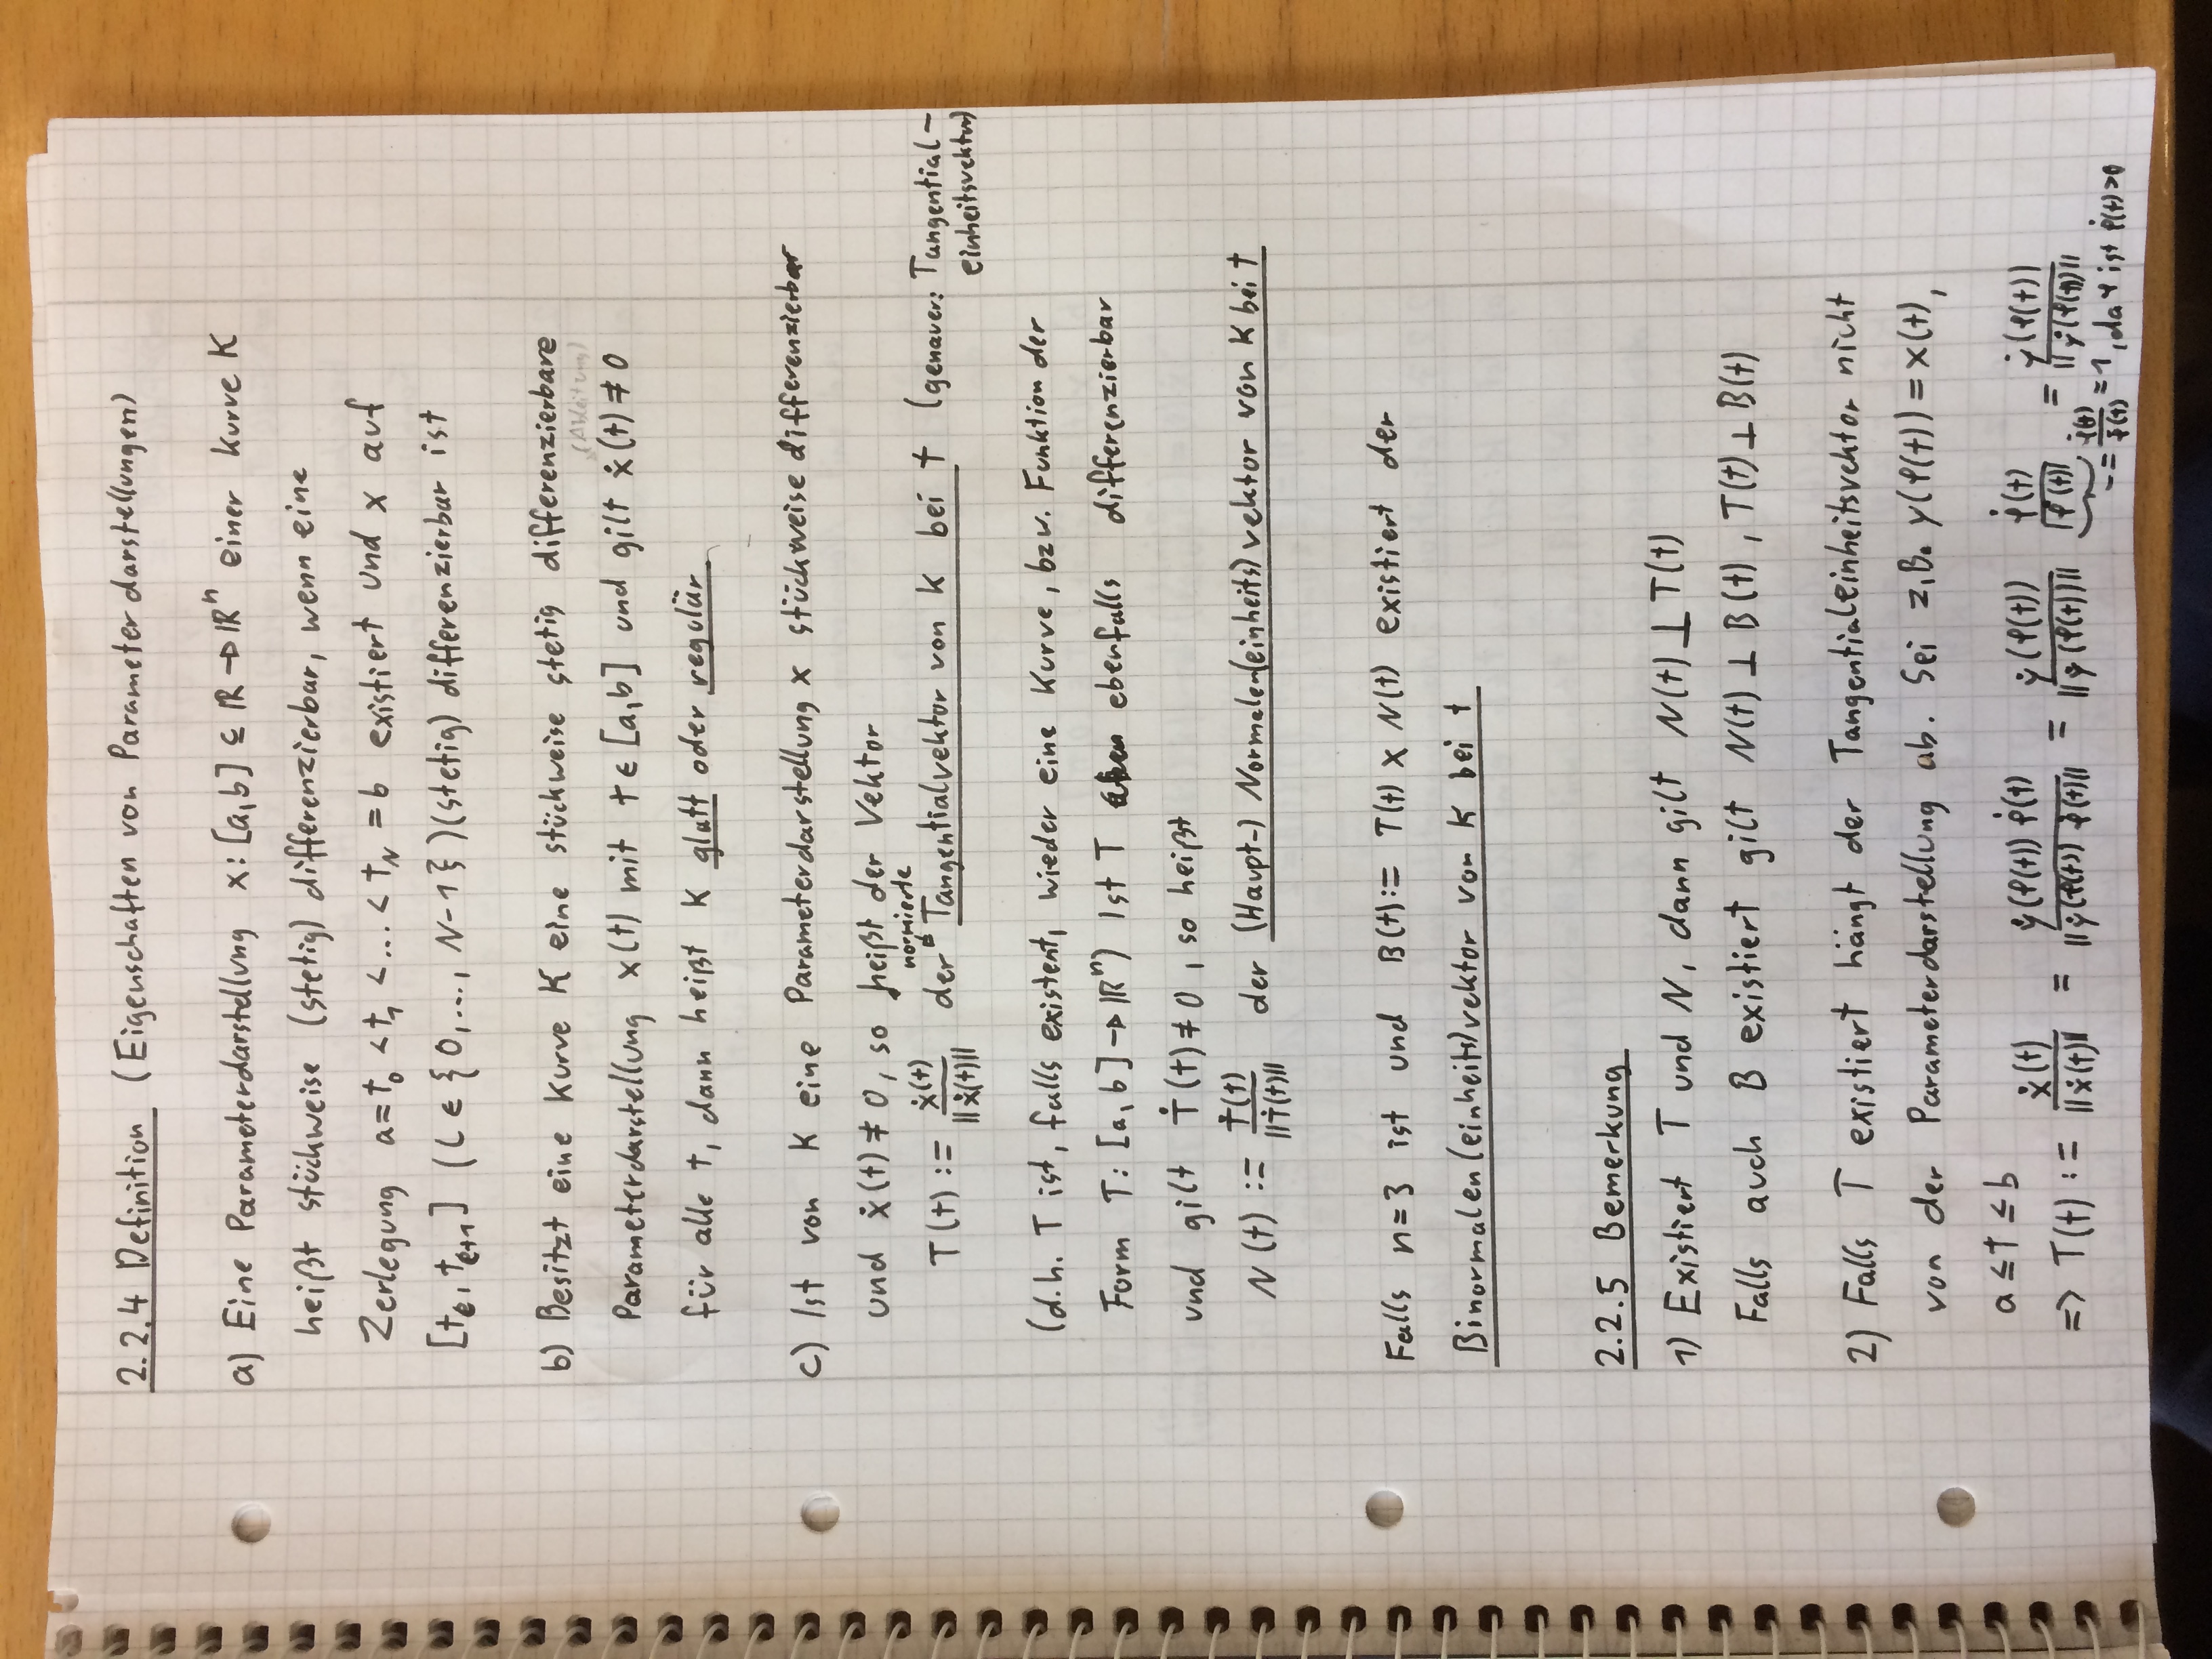 2.2.4 Definition (Eigenschaften von Parameterdarstellungen)
a) Eine Parameterdarstellung x: [a,b] ⊆ ℝ → ℝⁿ einer Kurve K
heißt stückweise (stetig) differenzierbar, wenn eine
Zerlegung a = t₀ < t₁ < ... < t_N = b existiert und x auf
[t_ℓ, t_ℓ+1] (ℓ ∈ {0,..., N-1}) (stetig) differenzierbar ist
b) Besitzt eine Kurve K eine stückweise stetig differenzierbare
(Ableitung)
Parameterdarstellung x(t) mit t ∈ [a,b] und gilt ẋ(t) ≠ 0
für alle t, dann heißt K glatt oder regulär
c) Ist von K eine Parameterdarstellung x stückweise differenzierbar
und ẋ(t) ≠ 0, so heißt der Vektor
normierte
T(t) := ẋ(t) / ||ẋ(t)|| der Tangentialvektor von K bei t (genauer: Tangential-
einheitsvektor)
(d.h. T ist, falls existent, wieder eine Kurve, bzw. Funktion der
Form T: [a,b] → ℝⁿ) Ist T ebenfalls differenzierbar
und gilt Ṫ(t) ≠ 0, so heißt
N(t) := Ṫ(t) / ||Ṫ(t)|| der (Haupt-) Normalen(einheits)vektor von K bei t
Falls n=3 ist und B(t) := T(t) × N(t) existiert der
Binormalen(einheits)vektor von K bei t
2.2.5 Bemerkung
1) Existiert T und N, dann gilt N(t) ⊥ T(t)
Falls auch B existiert gilt N(t) ⊥ B(t), T(t) ⊥ B(t)
2) Falls T existiert hängt der Tangentialeinheitsvektor nicht
von der Parameterdarstellung ab. Sei z.B. y(φ(t)) = x(t),
a ≤ t ≤ b
=> T(t) := ẋ(t) / ||ẋ(t)|| = ẏ(φ(t)) φ̇(t) / ||ẏ(φ(t)) φ̇(t)|| = ẏ(φ(t)) / ||ẏ(φ(t))|| φ̇(t) / |φ̇(t)| = ẏ(φ(t)) / ||ẏ(φ(t))||
= φ̇(t) / φ̇(t) = 1, da ist φ̇(t) > 0